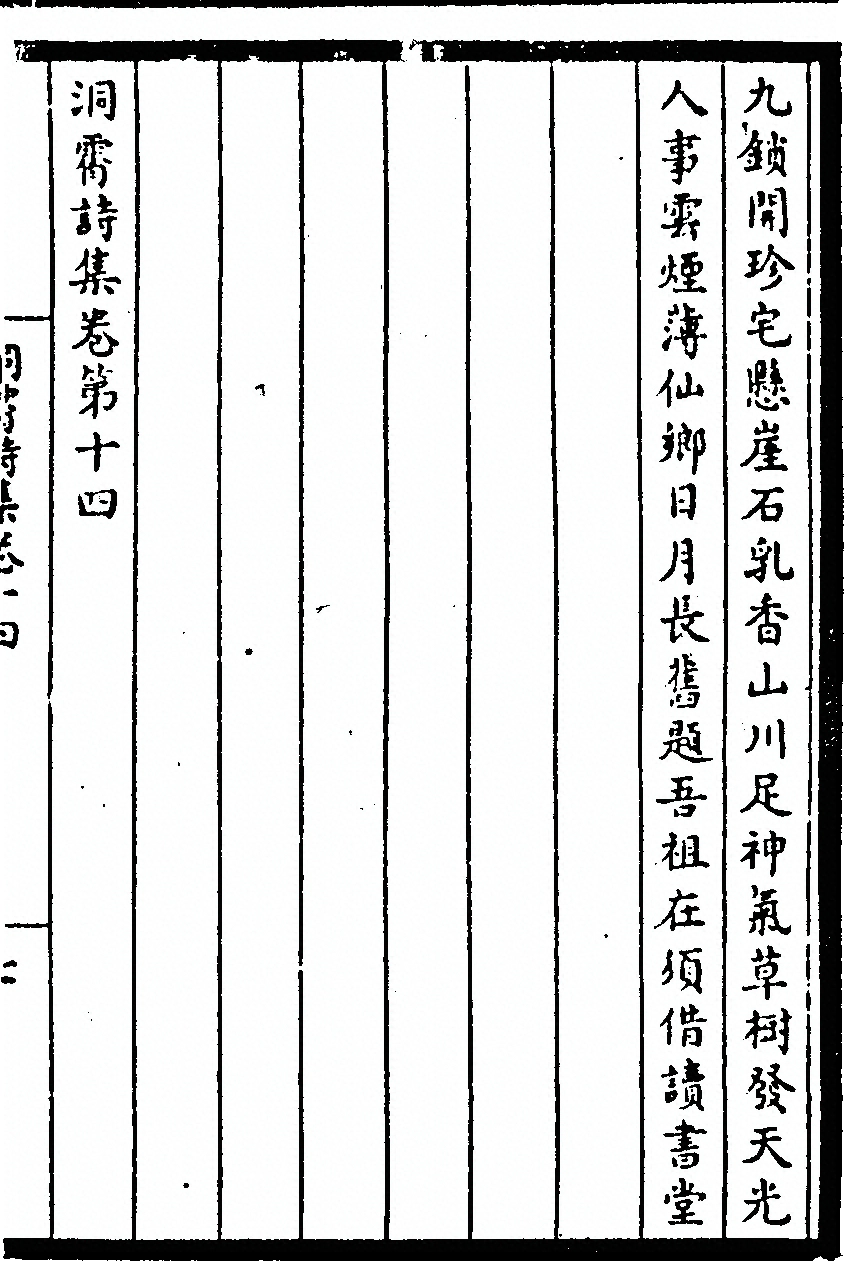 九鎖開珍宅懸崖石乳香山川足神氣草樹發天光
人事雲煙薄仙鄉日月長舊題吾祖在須借讀書堂
洞霄詩集卷第十四
洞霄詩集卷十四
二